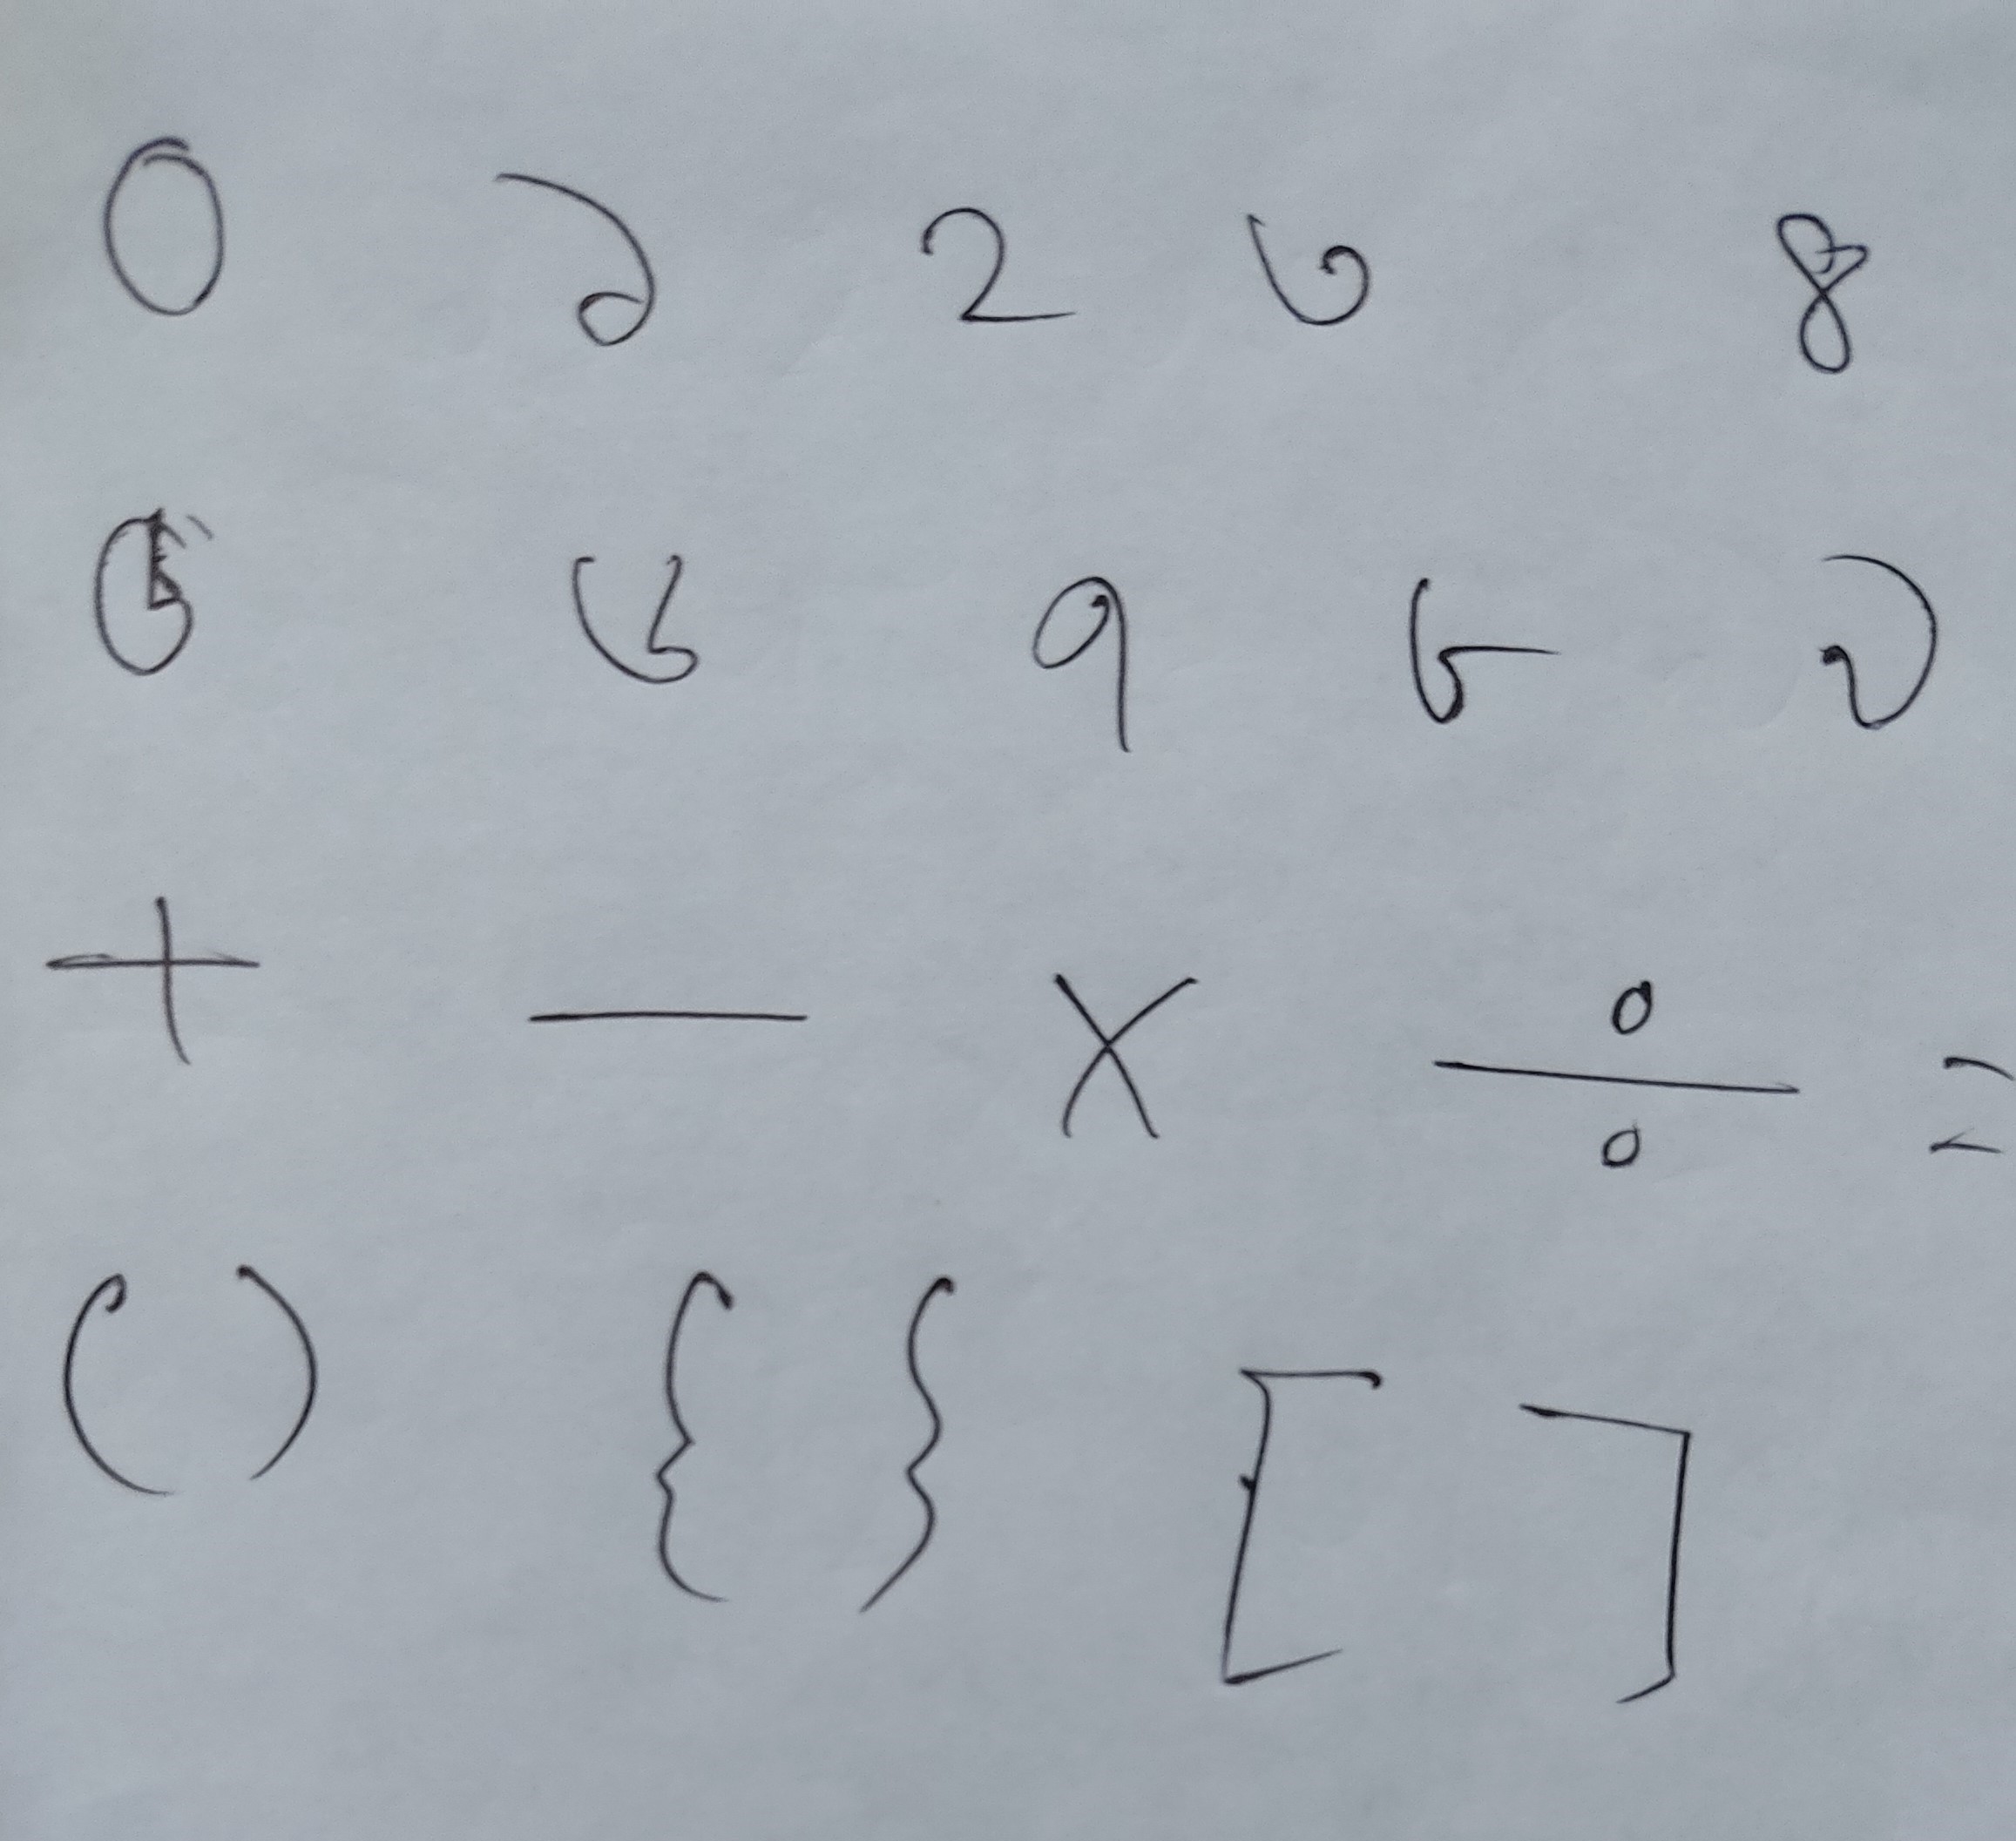 ০ ১ ২ ৩ ৪
৫ ৬ ৭ ৮ ৯
+ — × ÷ =
( ) { } [ ]